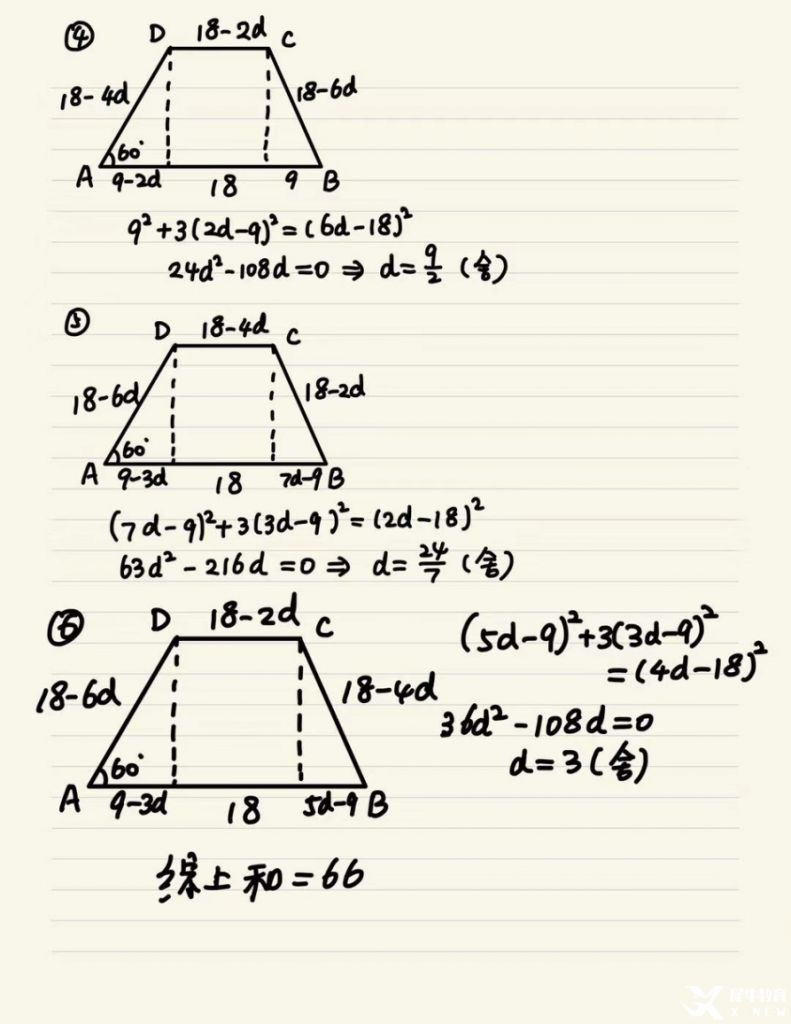 ④
D 18-2d C
18-4d 18-6d
60°
A 9-2d 18 9 B
9²+3(2d-9)²=(6d-18)²
24d²-108d=0 ⇒ d=9/2 (舍)
⑤
D 18-4d C
18-6d 18-2d
60°
A 9-3d 18 7d-9 B
(7d-9)²+3(3d-9)²=(2d-18)²
63d²-216d=0 ⇒ d=24/7 (舍)
⑥
D 18-2d C
18-6d 18-4d
60°
A 9-3d 18 5d-9 B
(5d-9)²+3(3d-9)²
=(4d-18)²
36d²-108d=0
d=3(舍)
综上和=66
犀牛教育
X-NEW